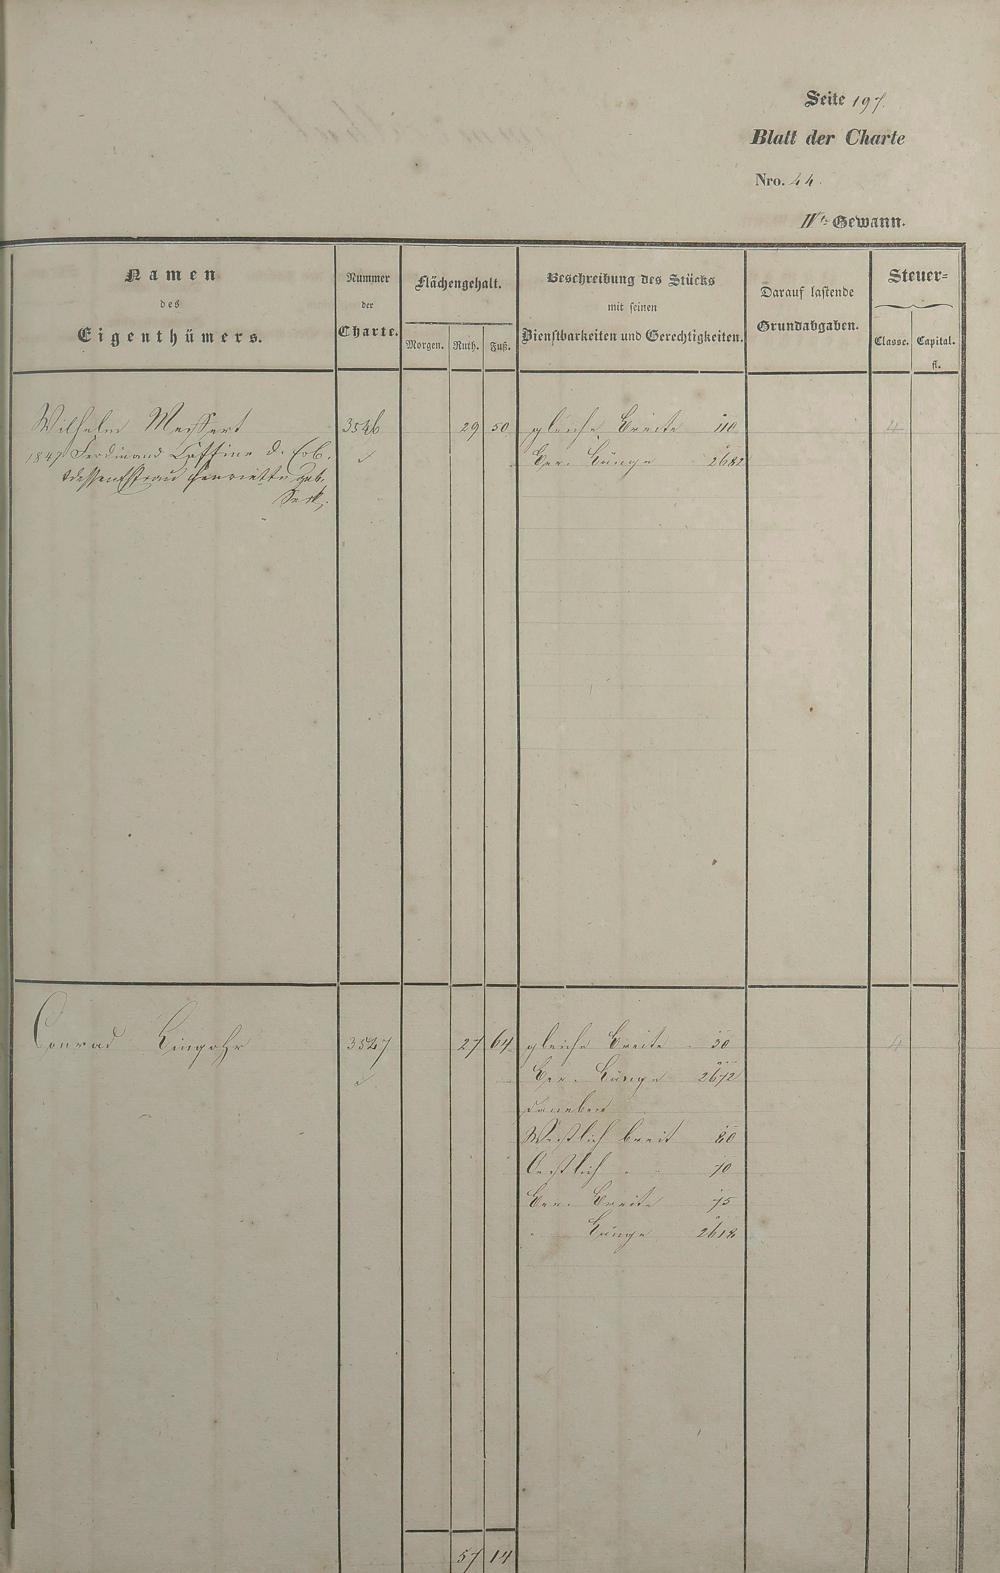 Seite 197.
Blatt der Charte
Nro. 44.
IVte Gewann.
Namen
des
Eigenthümers.
Nummer
der
Charte.
Flächengehalt.
Morgen. Ruth. Fuß.
Beschreibung des Stücks
mit seinen
Dienstbarkeiten und Gerechtigkeiten.
Darauf lastende
Grundabgaben.
Steuer=
Classe. Capital.
fl.
Wilhelm Meissert 3546 29 50 gleiche Breite 110 4
1847 Ferdinand d.
Ber. Länge 2682
dessen Ehefrau Henriette geb.
Conrad Lingohr 3547 27 64 gleiche Breite 30 4
Ber. Länge 2672
daneben
Westlich breit 80
Oestlich " 70
Ber. Breite 75
" Länge 2618
57 14